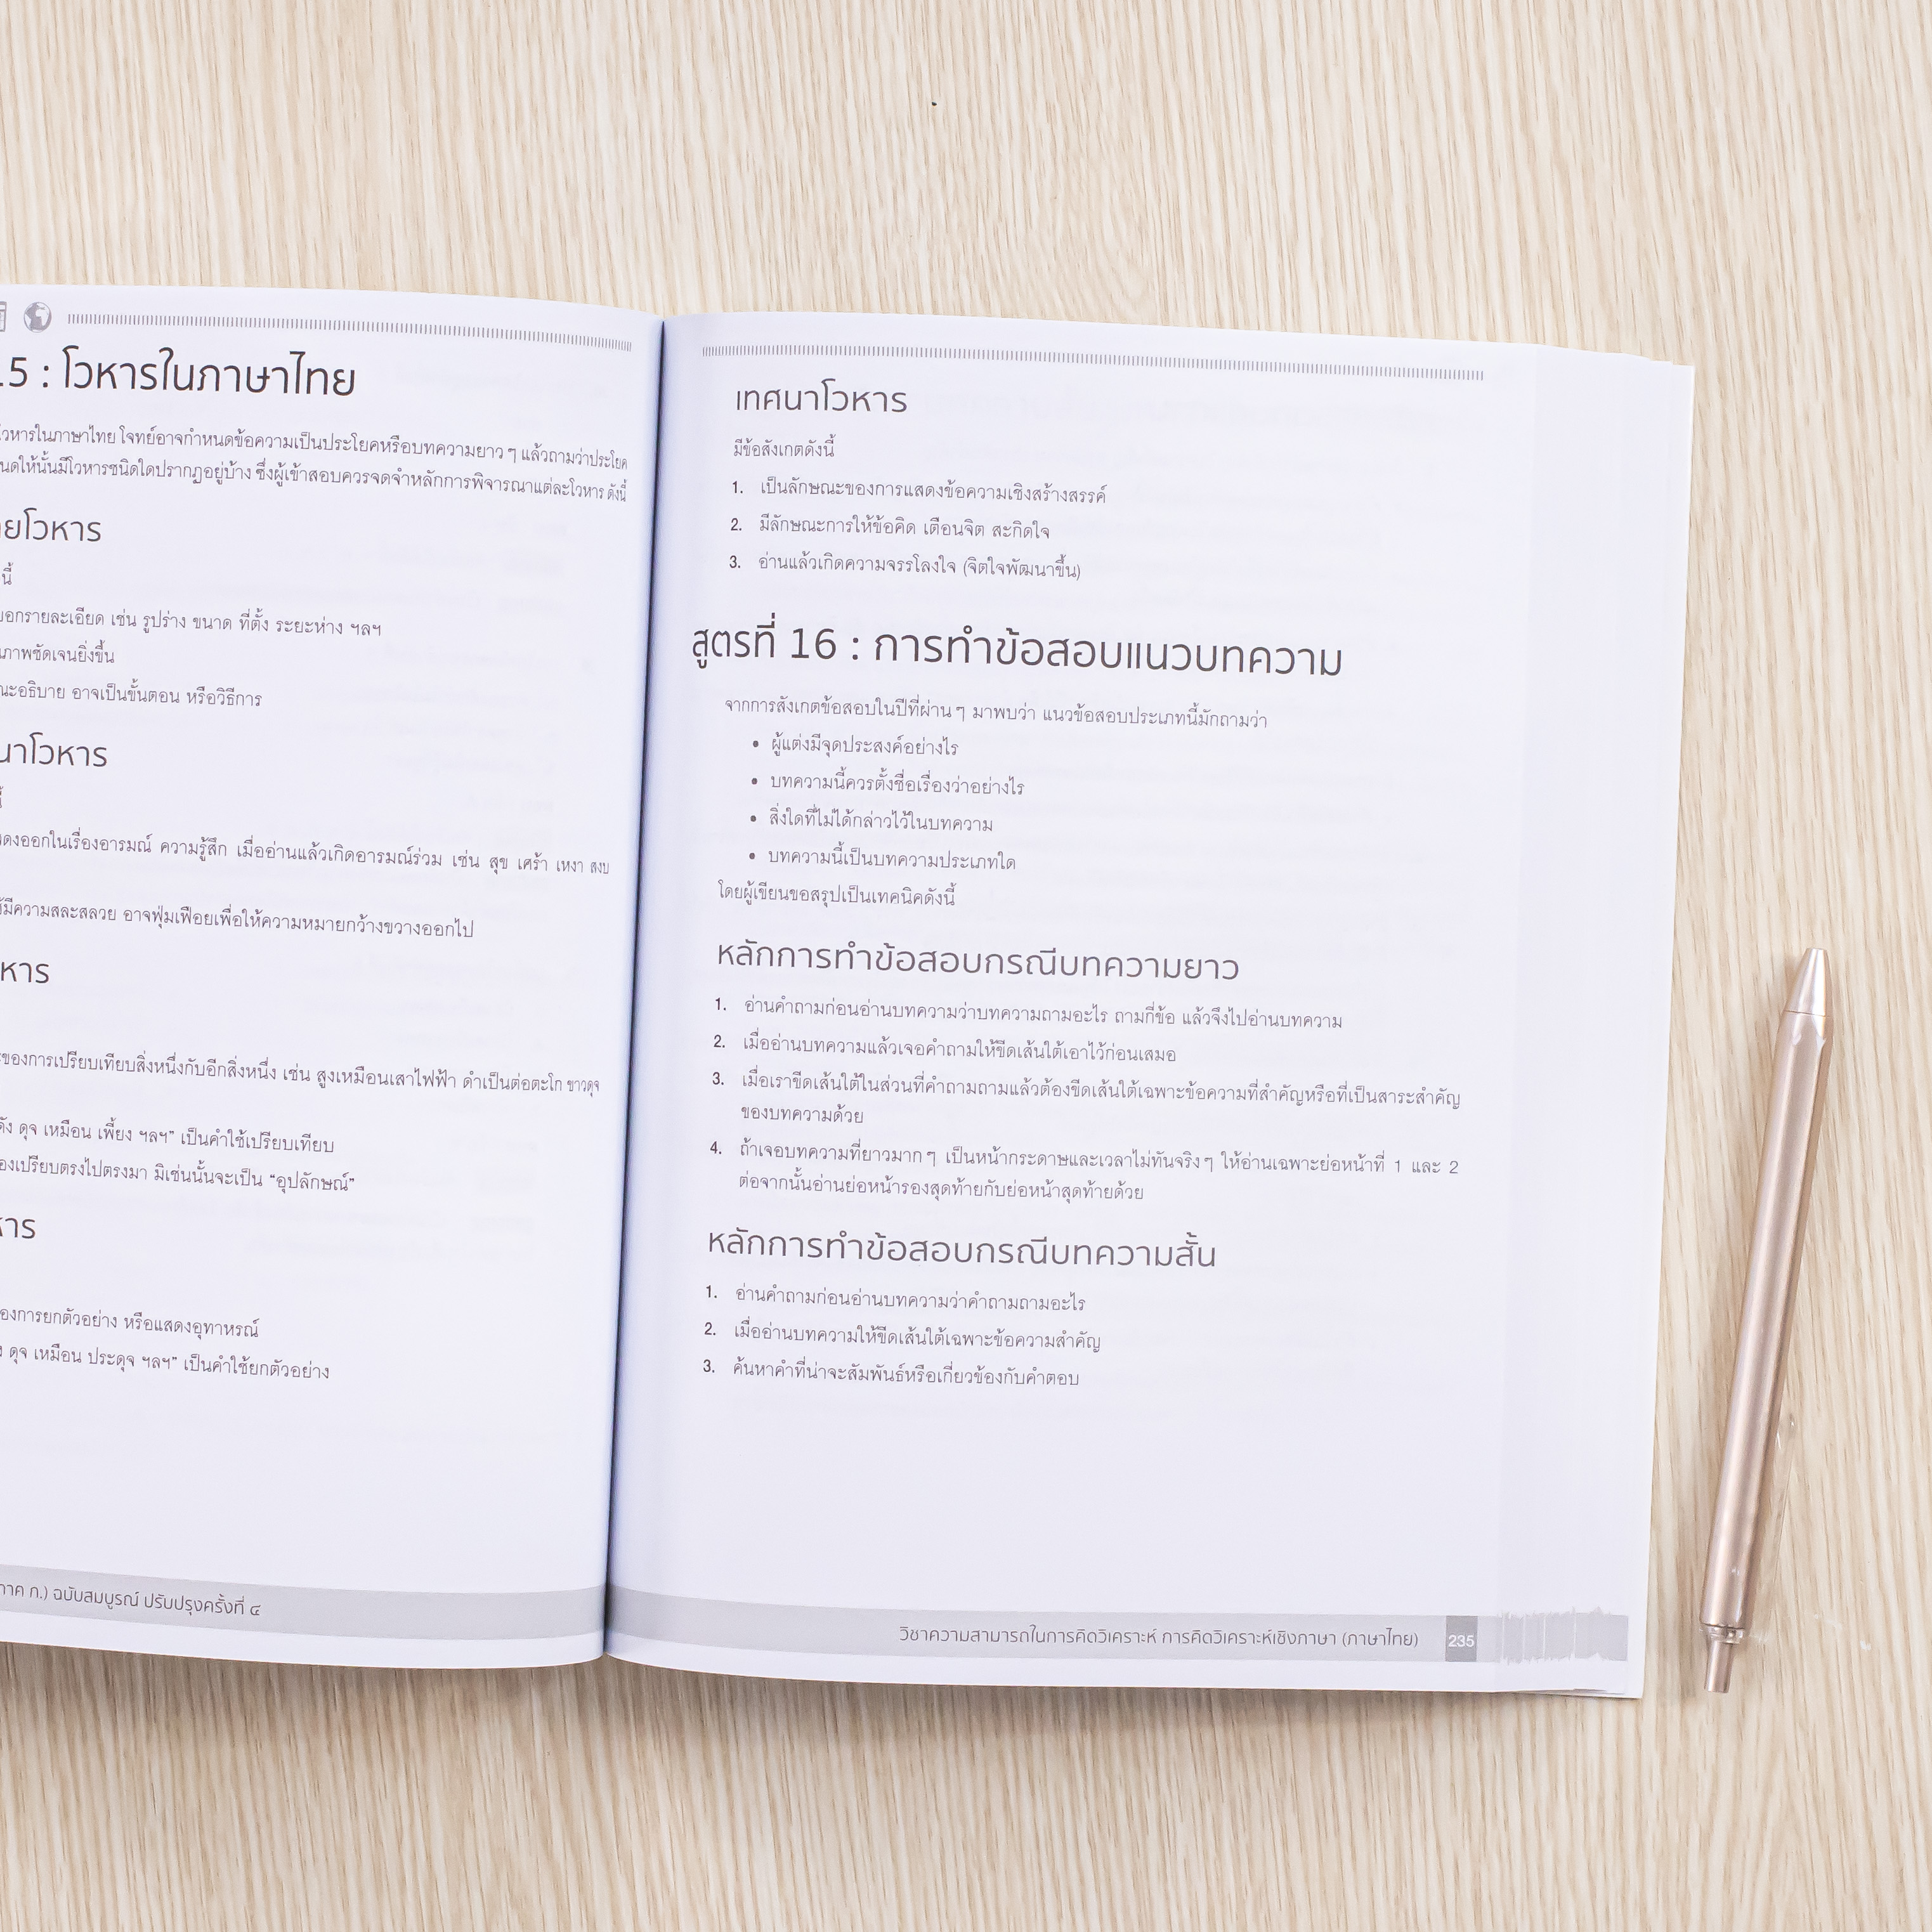 15 : โวหารในภาษาไทย
โวหารในภาษาไทย โจทย์อาจกำหนดข้อความเป็นประโยคหรือบทความยาว ๆ แล้วถามว่าประโยค
นดให้นั้นมีโวหารชนิดใดปรากฏอยู่บ้าง ซึ่งผู้เข้าสอบควรจดจำหลักการพิจารณาแต่ละโวหาร ดังนี้
ยโวหาร
นี้
บอกรายละเอียด เช่น รูปร่าง ขนาด ที่ตั้ง ระยะห่าง ฯลฯ
ภาพชัดเจนยิ่งขึ้น
ณะอธิบาย อาจเป็นขั้นตอน หรือวิธีการ
นาโวหาร
ดงออกในเรื่องอารมณ์ ความรู้สึก เมื่ออ่านแล้วเกิดอารมณ์ร่วม เช่น สุข เศร้า เหงา สงบ
มีความสละสลวย อาจฟุ่มเฟือยเพื่อให้ความหมายกว้างขวางออกไป
หาร
ของการเปรียบเทียบสิ่งหนึ่งกับอีกสิ่งหนึ่ง เช่น สูงเหมือนเสาไฟฟ้า ดำเป็นต่อตะโก ขาวดุจ
ดัง ดุจ เหมือน เพี้ยง ฯลฯ” เป็นคำใช้เปรียบเทียบ
องเปรียบตรงไปตรงมา มิเช่นนั้นจะเป็น “อุปลักษณ์”
หาร
องการยกตัวอย่าง หรือแสดงอุทาหรณ์
ง ดุจ เหมือน ประดุจ ฯลฯ” เป็นคำใช้ยกตัวอย่าง
ภาค ก.) ฉบับสมบูรณ์ ปรับปรุงครั้งที่ ๔
เทศนาโวหาร
มีข้อสังเกตดังนี้
1. เป็นลักษณะของการแสดงข้อความเชิงสร้างสรรค์
2. มีลักษณะการให้ข้อคิด เตือนจิต สะกิดใจ
3. อ่านแล้วเกิดความจรรโลงใจ (จิตใจพัฒนาขึ้น)
สูตรที่ 16 : การทำข้อสอบแนวบทความ
จากการสังเกตข้อสอบในปีที่ผ่าน ๆ มาพบว่า แนวข้อสอบประเภทนี้มักถามว่า
• ผู้แต่งมีจุดประสงค์อย่างไร
• บทความนี้ควรตั้งชื่อเรื่องว่าอย่างไร
• สิ่งใดที่ไม่ได้กล่าวไว้ในบทความ
• บทความนี้เป็นบทความประเภทใด
โดยผู้เขียนขอสรุปเป็นเทคนิคดังนี้
หลักการทำข้อสอบกรณีบทความยาว
1. อ่านคำถามก่อนอ่านบทความว่าบทความถามอะไร ถามกี่ข้อ แล้วจึงไปอ่านบทความ
2. เมื่ออ่านบทความแล้วเจอคำถามให้ขีดเส้นใต้เอาไว้ก่อนเสมอ
3. เมื่อเราขีดเส้นใต้ในส่วนที่คำถามถามแล้วต้องขีดเส้นใต้เฉพาะข้อความที่สำคัญหรือที่เป็นสาระสำคัญ
ของบทความด้วย
4. ถ้าเจอบทความที่ยาวมาก ๆ เป็นหน้ากระดาษและเวลาไม่ทันจริง ๆ ให้อ่านเฉพาะย่อหน้าที่ 1 และ 2
ต่อจากนั้นอ่านย่อหน้ารองสุดท้ายกับย่อหน้าสุดท้ายด้วย
หลักการทำข้อสอบกรณีบทความสั้น
1. อ่านคำถามก่อนอ่านบทความว่าคำถามถามอะไร
2. เมื่ออ่านบทความให้ขีดเส้นใต้เฉพาะข้อความสำคัญ
3. ค้นหาคำที่น่าจะสัมพันธ์หรือเกี่ยวข้องกับคำตอบ
วิชาความสามารถในการคิดวิเคราะห์ การคิดวิเคราะห์เชิงภาษา (ภาษาไทย) 235